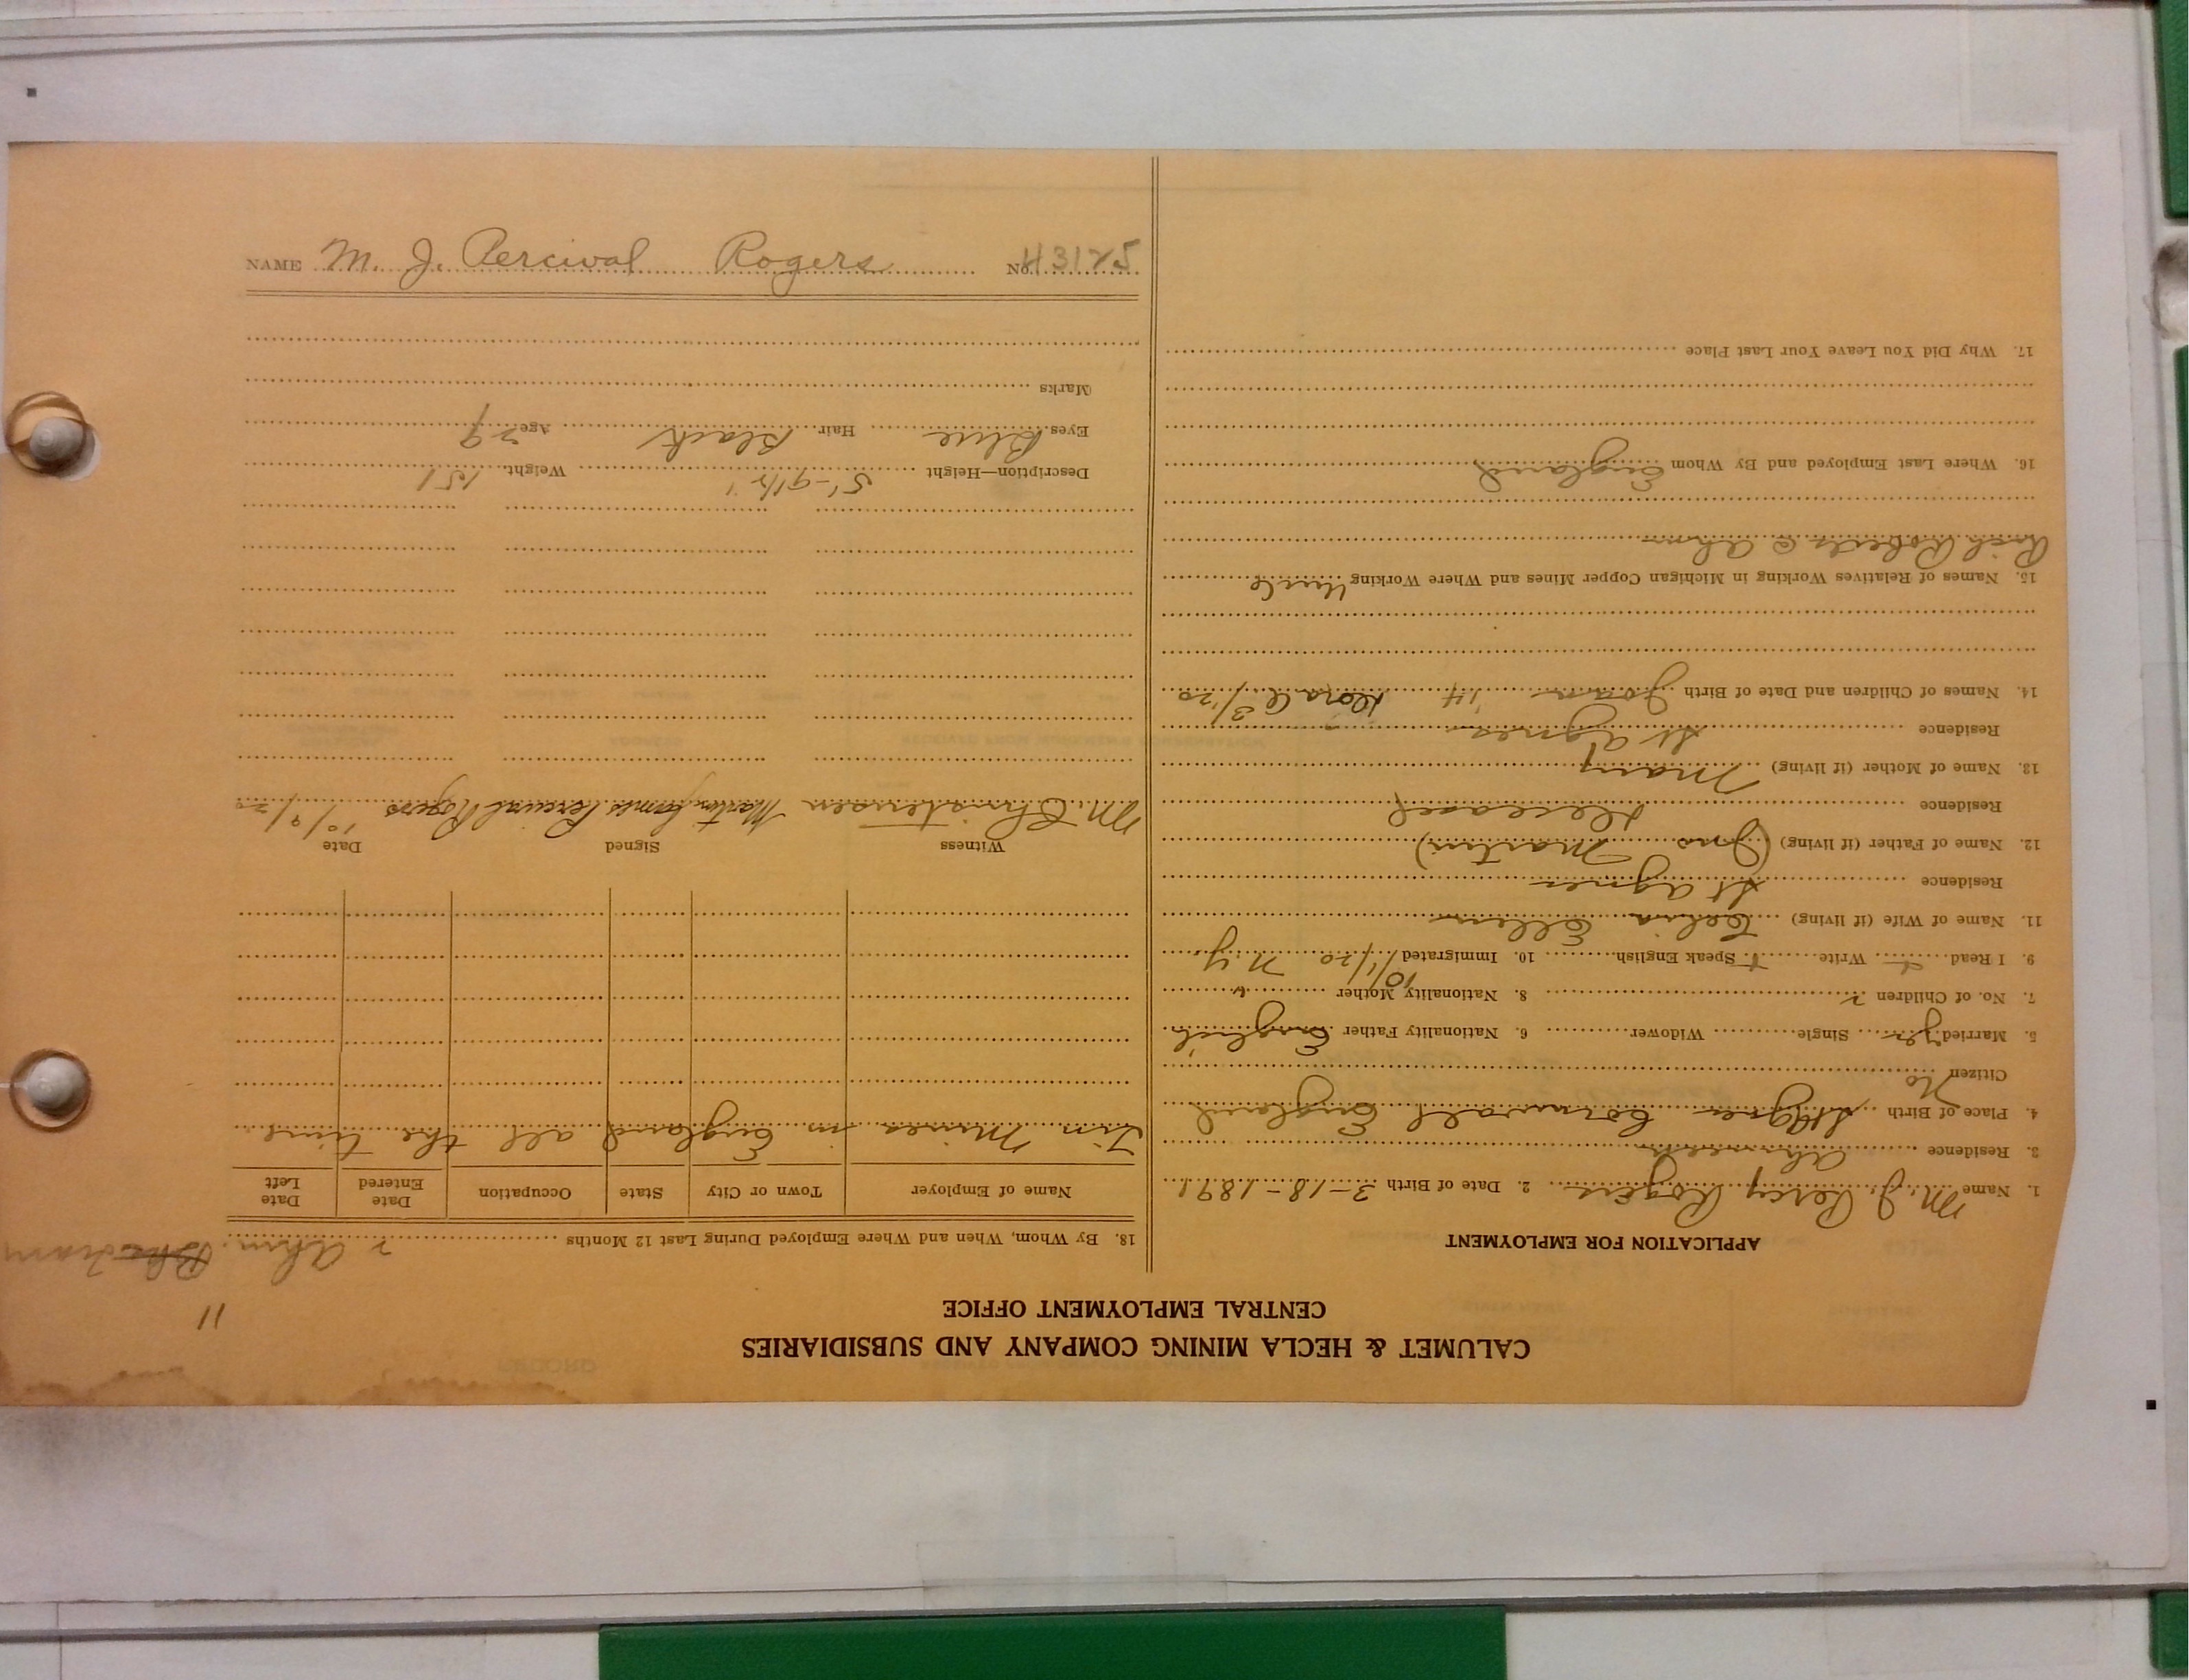 CALUMET & HECLA MINING COMPANY AND SUBSIDIARIES
CENTRAL EMPLOYMENT OFFICE
11
APPLICATION FOR EMPLOYMENT
1. Name M. J. Percy Rogers 2. Date of Birth 3-18-1891
3. Residence Ahmeek
4. Place of Birth St Agnes Cornwall England
Citizen No
5. Married yes Single Widower 6. Nationality Father English
7. No. of Children 2 8. Nationality Mother "
9. I Read Write Speak English 10. Immigrated 10/1/20 N.Y.
11. Name of Wife (if living) Ellen
Residence St Agnes
12. Name of Father (if living) (Jno Martin)
Residence Deceased
13. Name of Mother (if living) Mary
Residence St Agnes
14. Names of Children and Date of Birth '14 3/20
15. Names of Relatives Working in Michigan Copper Mines and Where Working Uncle
Rich Roberts @ Ahm
16. Where Last Employed and By Whom England
17. Why Did You Leave Your Last Place
18. By Whom, When and Where Employed During Last 12 Months
2 Ahm. Tram
Name of Employer Town or City State Occupation Date Entered Date Left
Tin Mines in England all the time.
Witness Signed Date
M. Christensen Martin James Percival Rogers 10/9/20
Description—Height 5'-9 1/2" Weight 151
Eyes Blue Hair Black Age 29
Marks
NAME M. J. Percival Rogers No. 43125